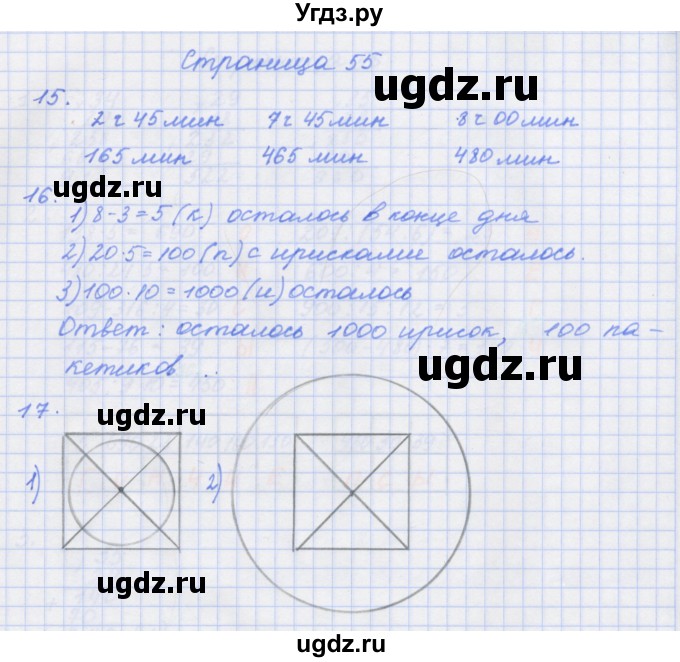 Угдз.ру
Страница 55
ugdz.ru
15.
2 ч 45 мин 7 ч 45 мин 8 ч 00 мин
165 мин 465 мин 480 мин
ugdz.ru
16.
1) 8-3=5 (к) осталось в конце дня
2) 20·5=100 (п) с ирисками осталось.
3) 100·10=1000 (и) осталось
Ответ: осталось 1000 ирисок, 100 па-
кетиков
ugdz.ru
17.
ugdz.ru
1) 2)
ugdz.ru
ugdz.ru
ugdz.ru